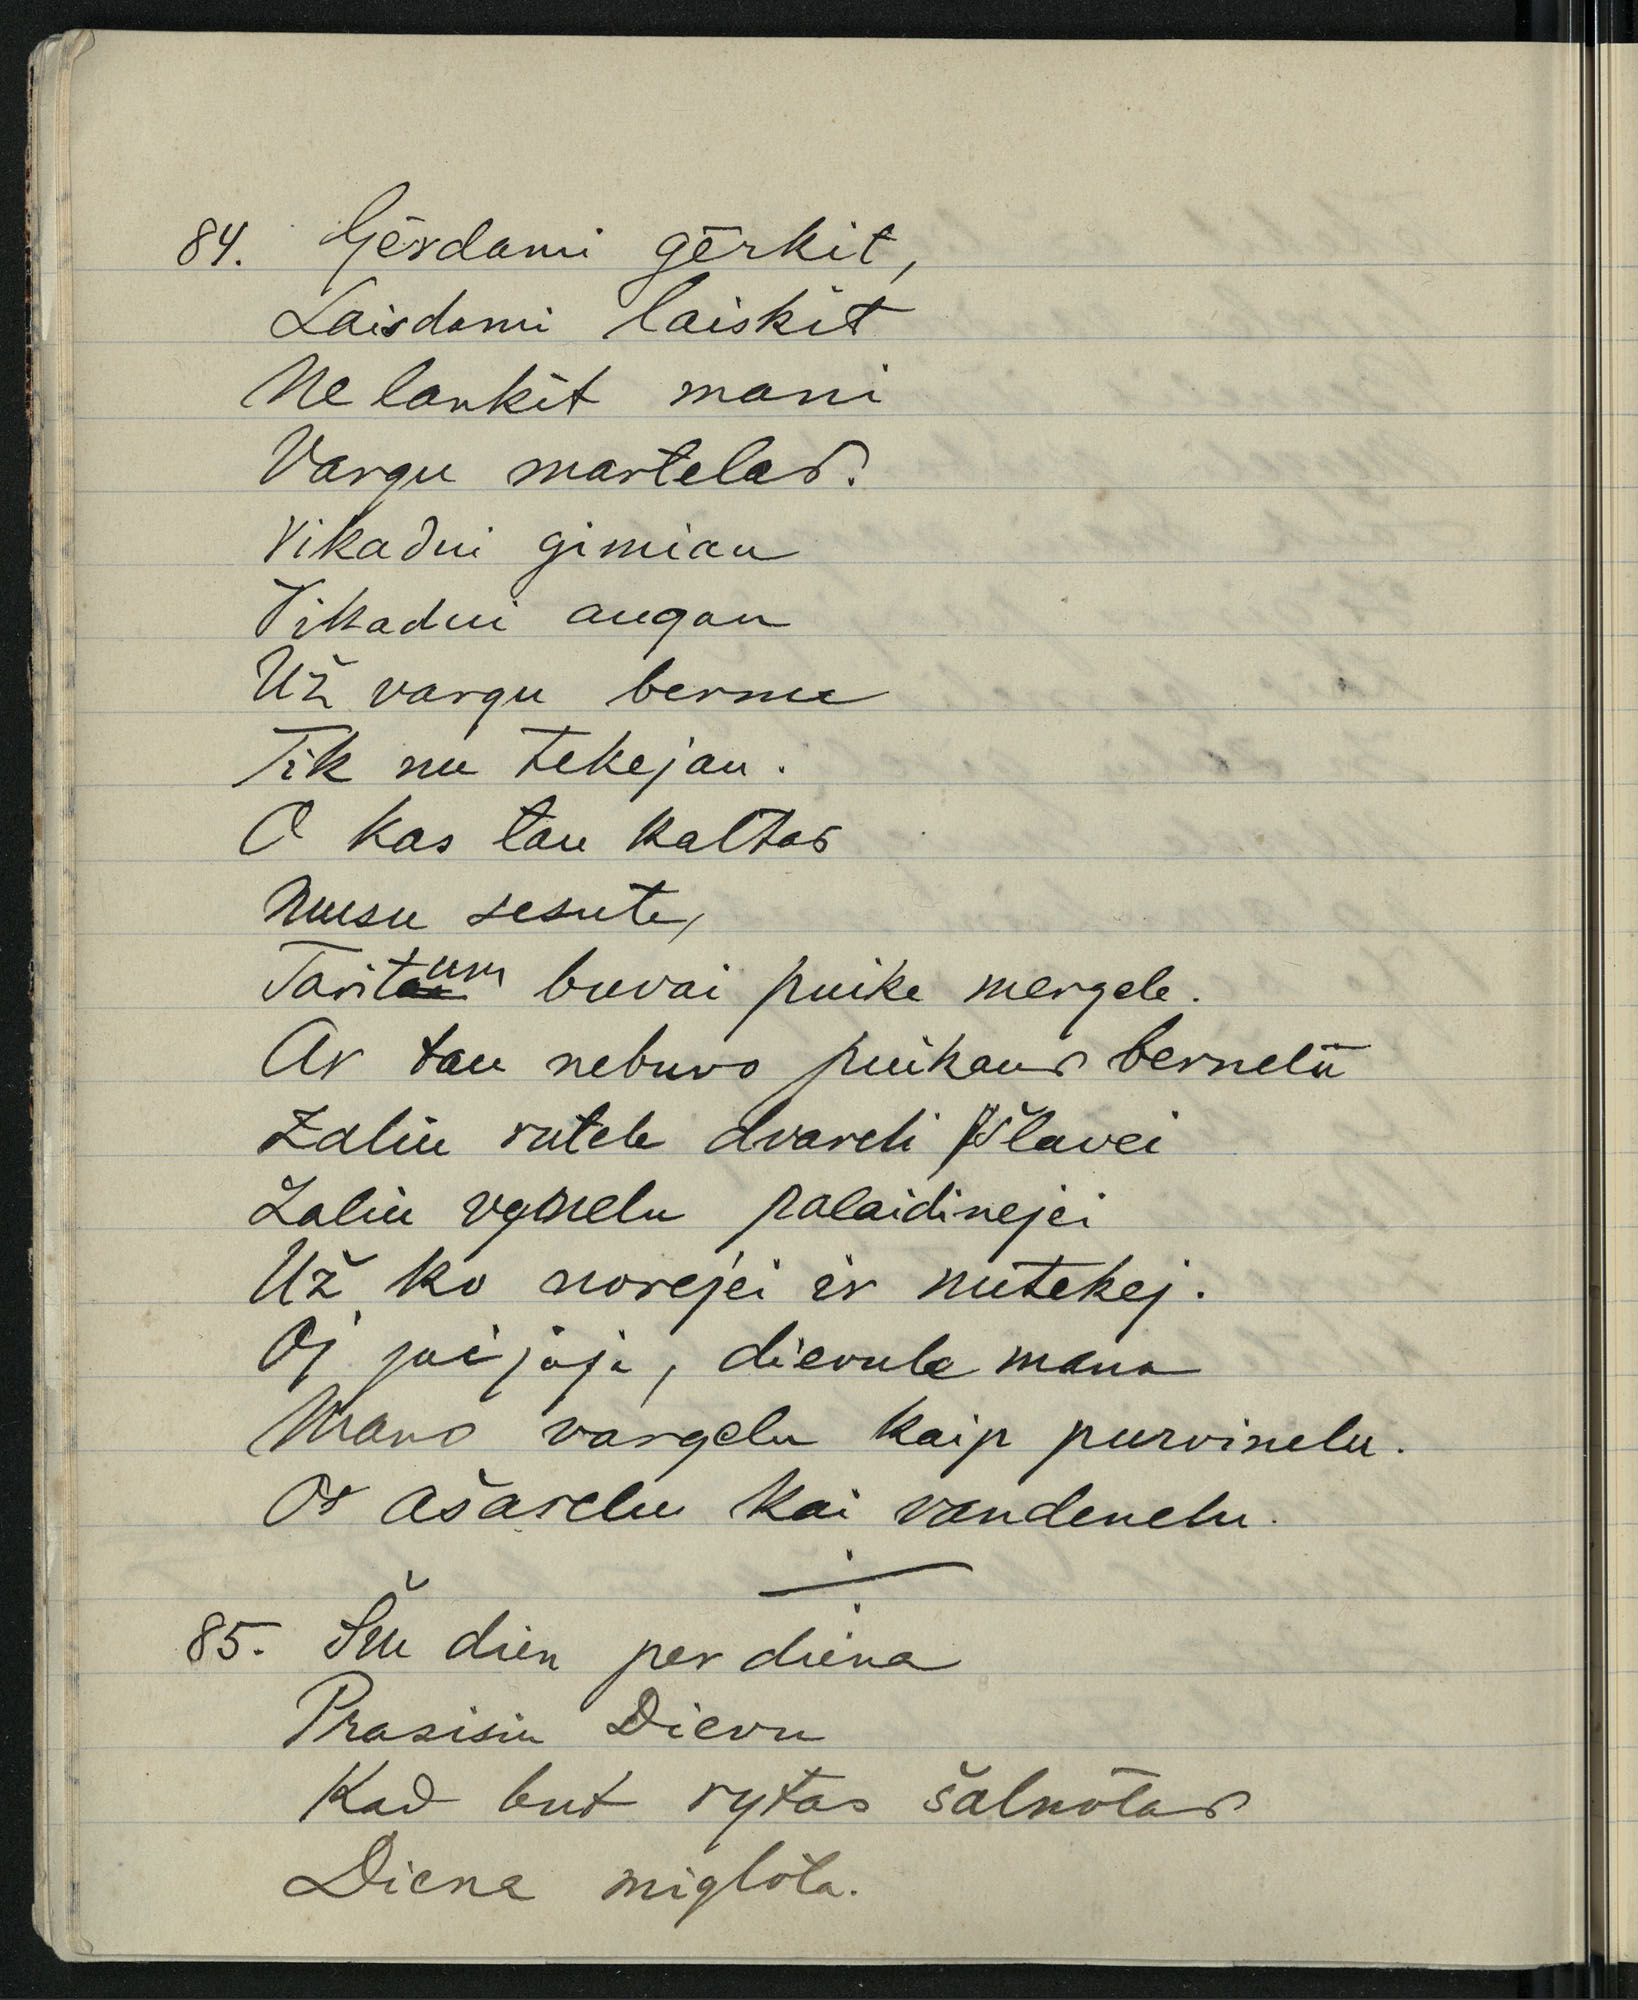 84. Gērdami gērkit,
Laisdami laiskit
Ne lankit mani
Vargu martelas.
Vikadui gimiau
Vikadui augau
Už vargu bernu
Tik nu tekejau.
O kas tau kaltas
Musu sesute,
Taritum buvai puike mergele.
Ar tau nebuvo puikaus berneliu
Zaliu rutele dvareli šlavei
Žaliu vynelu palaidinejei
Už ko norejei ir nutekej.
Oj joi joji, dievule mana
Mano vargelu kaip purvinelu.
O ašarelu kai vandenelu.
85. Šiu dien per diena
Prasisiu Dievu
Kad but rytas šalnōtas
Diena miglōta.